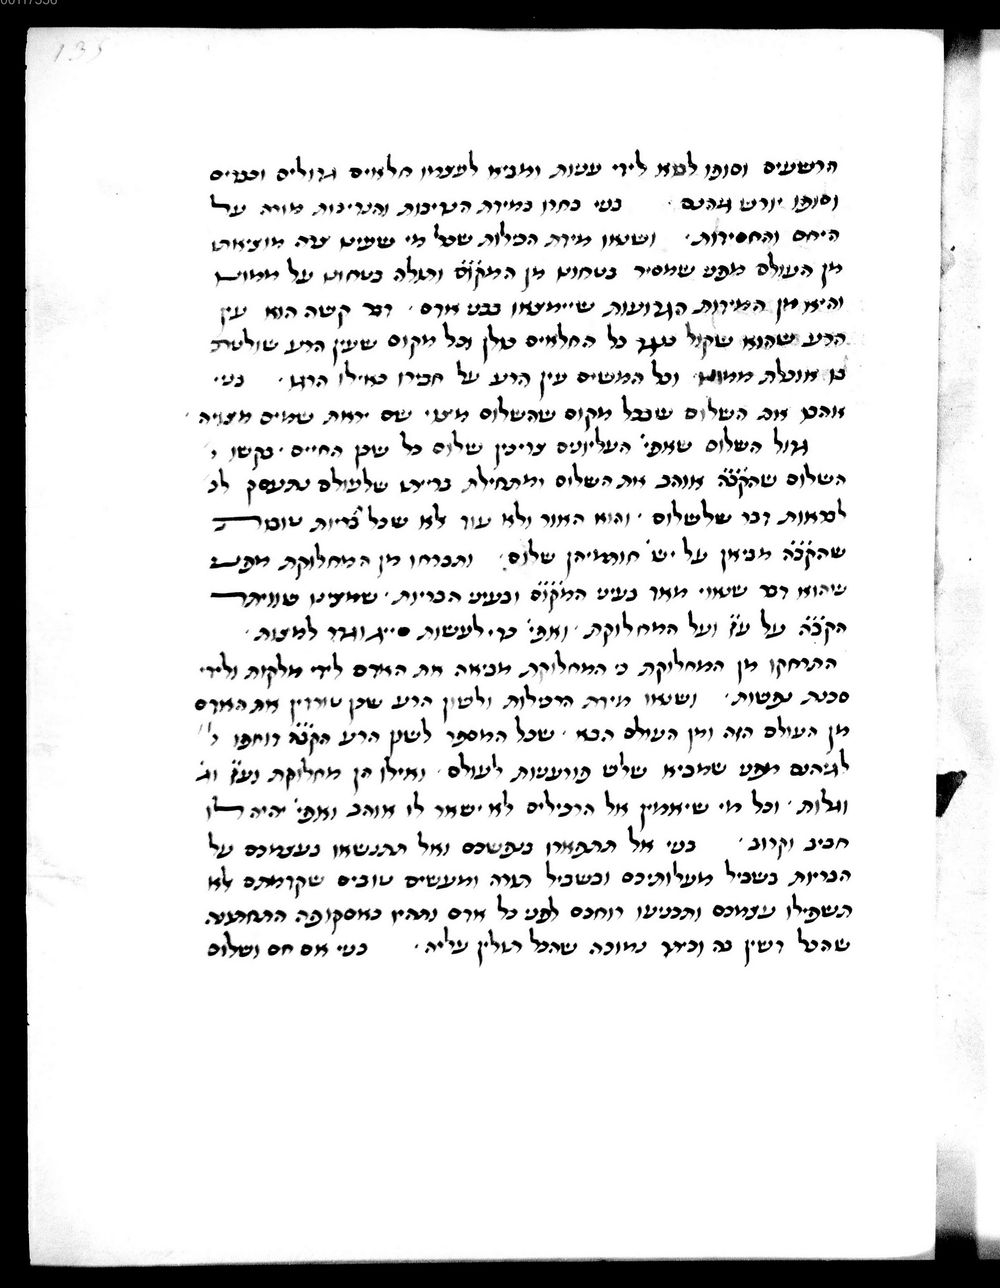 135
הרשעים וסופו לבוא לידי עניות ומביא לעצמו חלאים גדולים וכבדים
וסופו יורש גהנם בני בחרו במידת הנדיבות והנדיבות מורה על
היחס והחסידות ושנאו מידת הכילות שכל מי שעינו צרה מוציאתו
מן העולם מפני שמסיר בטחונו מן המקום ותולה בטחונו על ממונו
והיא מן המידות הגרועות שיימצאו בבני אדם דבר קשה הוא עין
הרע שהוא שקול כנגד כל החלאים כולן וכל מקום שעין הרע שולטת
בו אוכלת ממונו וכל המשים עין הרע על חבירו כאילו הרגו בני
אהבו את השלום שבכל מקום שהשלום מצוי שם יראת שמים מצויה
גדול השלום שאפי' העליונים צריכין שלום כל שכן החיים בקשו
השלום שהקבה אוהב את השלום ומתחילת ברייתו שלעולם נתעסק
לבראות דבר שלשלום והוא האור ולא עוד אלא שכל בריות טובות
שהקבה מביאן על יש' חותמיהן שלום ותברחו מן המחלוקת מפני
שהוא דבר שנאוי מאד בעיני המקום ובעיני הבריות שמצינו שוויתר
הקבה על עז ועל המחלוקת ואפי' כדי לעשות סייג וגדר למצות
התרחקו מן המחלוקת כי המחלוקת מביאה את האדם לידי מלקות ולידי
סכנת נפשות ושנאו מידת הרכילות ולשון הרע שכן טורדין את האדם
מן העולם הזה ומן העולם הבא שכל המספר לשון הרע הקבה דוחפו
לגיהנם מפני שמביא שלש פורעניות לעולם ואילו הן מחלוקת ועז
וגלות וכל מי שיאמין אל הרכילים לא ישאר לו אוהב ואפי' יהיה לו
חביב וקרוב בני אל תתפארו בנפשכם ואל תתנשאו בעצמכם על
הבריות בשביל מעלותיכם ובשביל תורה ומעשים טובים שקדמתם אלא
תשפילו עצמכם ותכניעו רוחכם לפני כל אדם ותהיו כאסקופה התחתונה
שהכל דשין בה וכיתד נמוכה שהכל תולין עליה בני אם חס ושלום